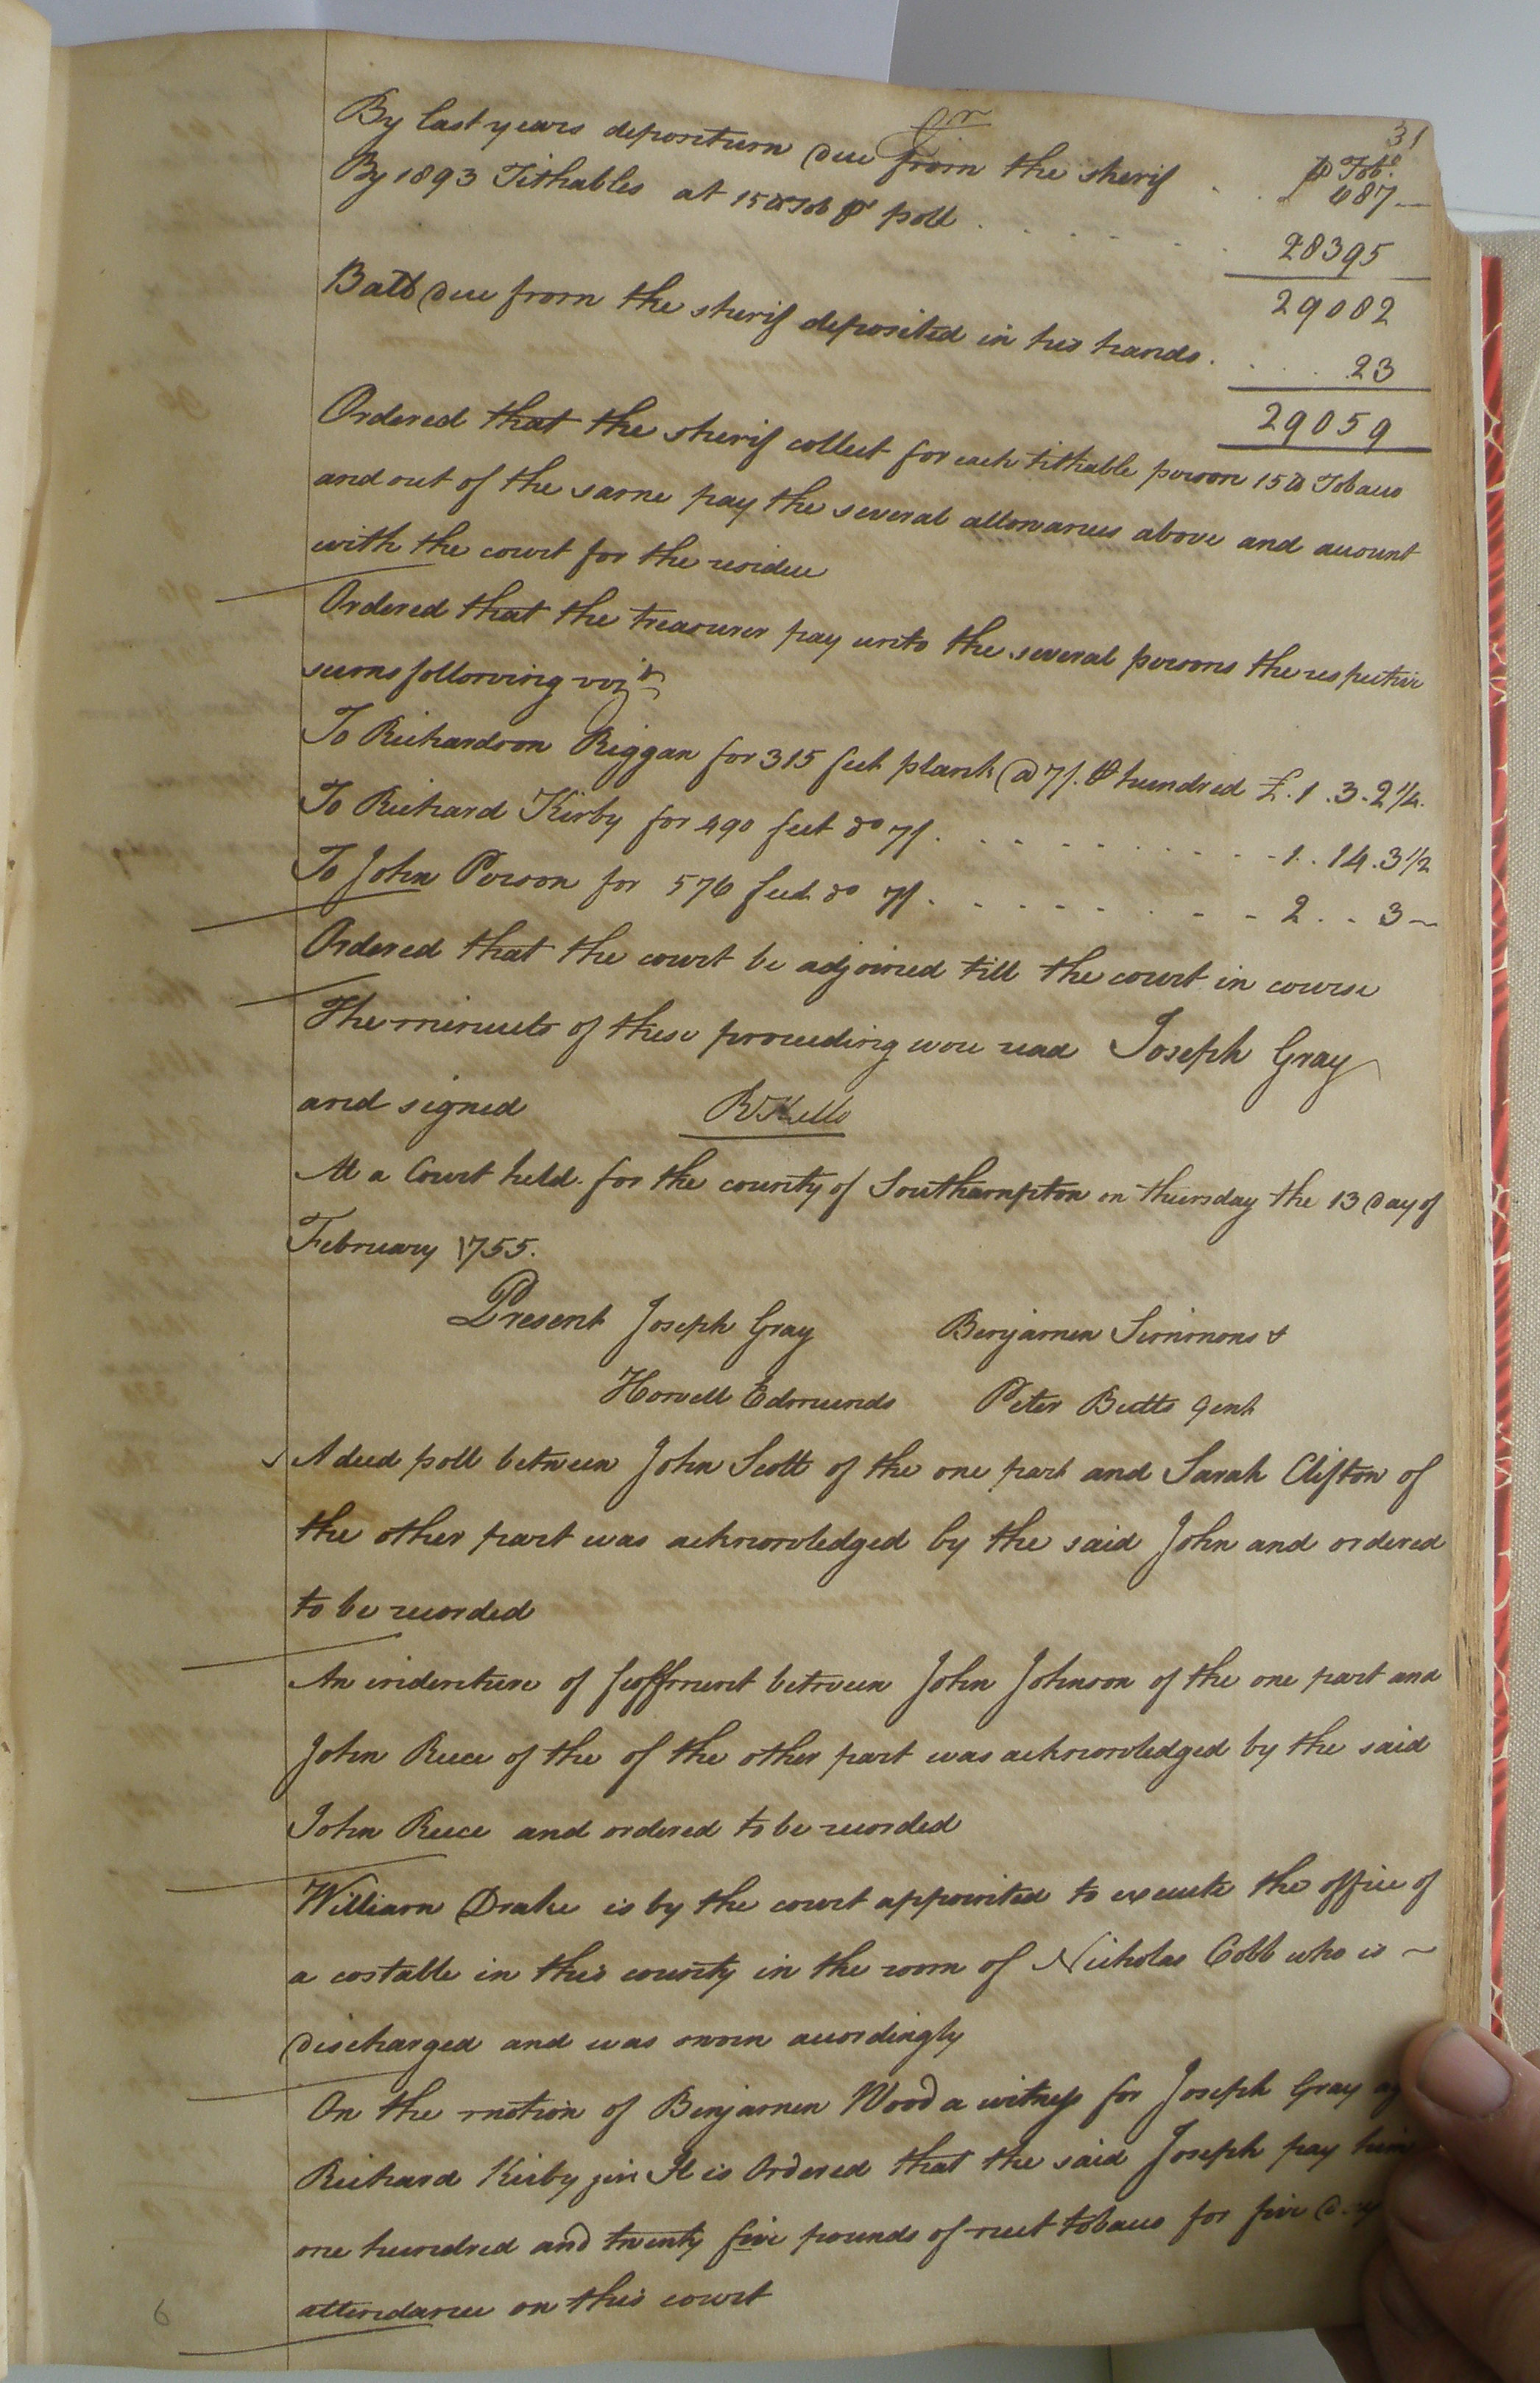 31
Cr
lb Tobo.
By last years depositum due from the sherif . . . 687—
By 1893 Tithables at 15 lb Tob pr poll . . . . . 28395
29082
Ballo due from the sherif deposited in his hands . . . . 23
29059
Ordered that the sherif collect for each tithable person 15 lb Tobacco
and out of the same pay the several allowances above and account
with the court for the residue
Ordered that the treasurer pay unto the several persons the respective
sums following vizt
To Richardson Biggan for 315 feet plank @ 7/. P hundred £.1.3.2 1/4.
To Richard Kirby for 490 feet do 7/ . . . . . . . . 1..14.3 1/2
To John Person for 576 feet do 7/. . . . . . . . . 2..3~
Ordered that the court be adjoined till the court in course
The minuets of these proceeding were read Joseph Gray
and signed RKello
At a Court held for the county of Southampton on thursday the 13 day of
February 1755.
Present Joseph Gray Benjamen Simmons &
Howell Edmunds Peter Butts gent
A deed poll between John Scott of the one part and Sarah Clifton of
the other part was acknowledged by the said John and ordered
to be recorded
An indenture of feoffment between John Johnson of the one part and
John Reece of the of the other part was acknowledged by the said
John Reece and ordered to be recorded
William Drake is by the court appointed to execute the office of
a costable in this county in the room of Nicholas Cobb who is ~
discharged and was sworn accordingly
On the motion of Benjamen Wood a witness for Joseph Gray ag
Richard Kirby jun It is Ordered that the said Joseph pay him
one hundred and twenty five pounds of neet tobacco for five day
attendance on this court
6